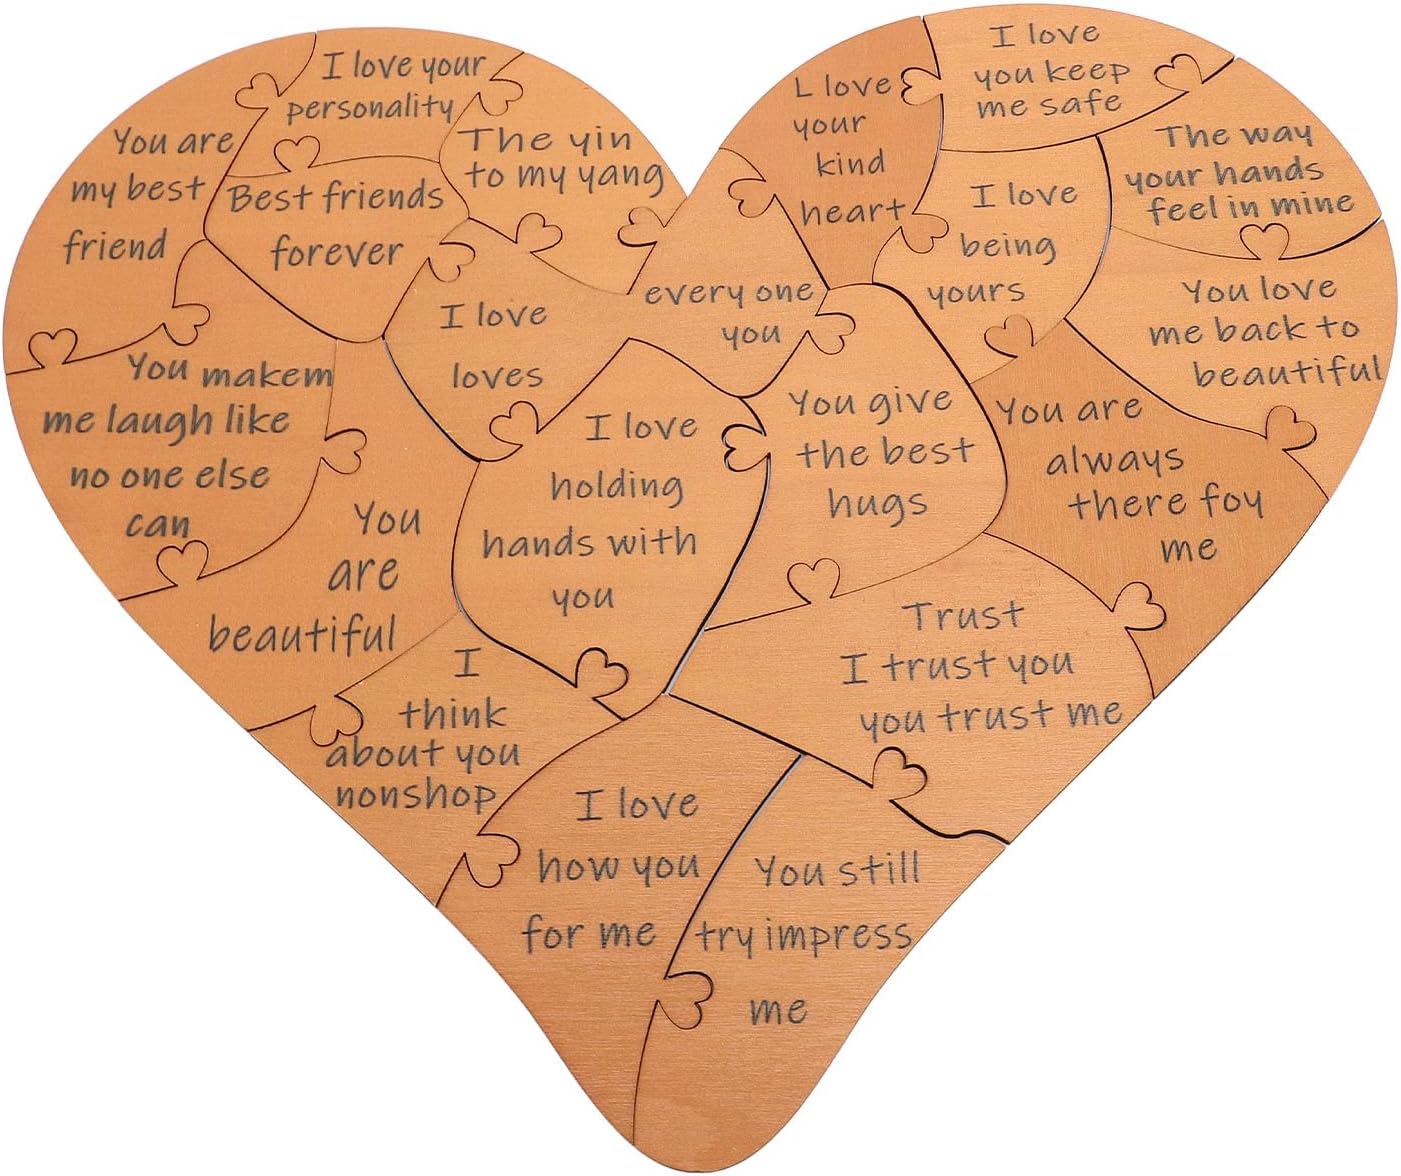 I love your
personality
You are
my best
friend
Best friends
forever
The yin
to my yang
L love
your
kind
heart
I love
you keep
me safe
The way
your hands
feel in mine
I love
being
yours
every one
you
I love
loves
You love
me back to
beautiful
You makem
me laugh like
no one else
can
You
are
beautiful
I love
holding
hands with
you
You give
the best
hugs
You are
always
there foy
me
Trust
I trust you
you trust me
I
think
about you
nonshop
I love
how you
for me
You still
try impress
me